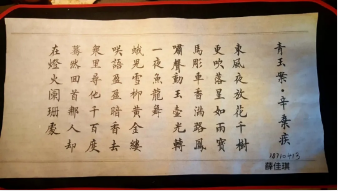 青玉案·辛棄疾
東風夜放花千樹
更吹落星如雨寶
馬彫車香滿路鳳
嘯聲動玉壺光轉
一夜魚龍舞
蛾兒雪柳黃金縷
咲語盈盈暗香去
衆里尋他千百度
驀然回首那人却
在燈火闌珊處
薛佳琪